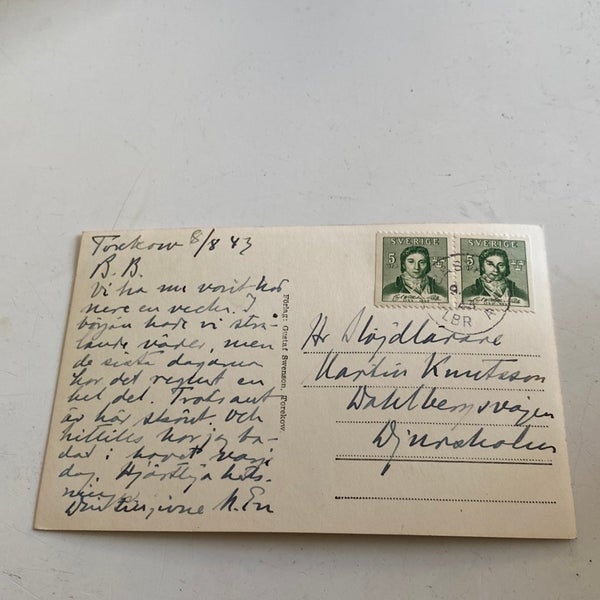 Torekow 8/8 43
B. B.
Vi ha nu varit här
nere en vecka. I
början hade vi strå-
lande väder, men
de sista dagarna
har det regnat en
hel del. Trots allt
är här skönt. Och
hittills har jag ba-
dat i havet varje
dag. Hjärtliga häls-
ningar
Din tillgivne
Förlag: Gustaf Swenson, Torekow
SVERIGE SVERIGE
5 5
LBR
Hr Slöjdlärare
Martin Knutsson
Dahlbergsvägen
Djursholm